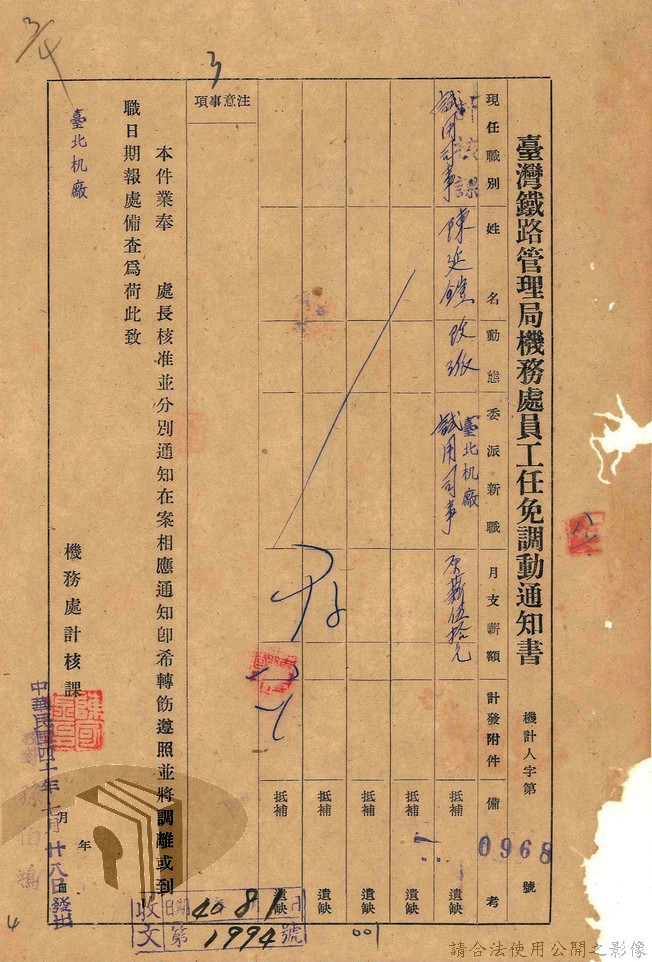 臺灣鐵路管理局機務處員工任免調動通知書
機計人字第 0968 號
現任職別
姓名
動態
委派新職
月支薪額
計發附件
備考
計核課
試用司事
陳延鏜
改派
臺北机廠
試用司事
原薪伍拾元
抵補 遺缺
抵補 遺缺
抵補 遺缺
抵補 遺缺
抵補 遺缺
注意事項
3
本件業奉 處長核准並分別通知在案相應通知即希轉飭遵照並將調離或到
職日期報處備查為荷此致
臺北机廠
機務處計核課
年 月
廿八日發出
收文
日期 40 8 1 日
第 1994 號
3/4
4
001
請合法使用公開之影像